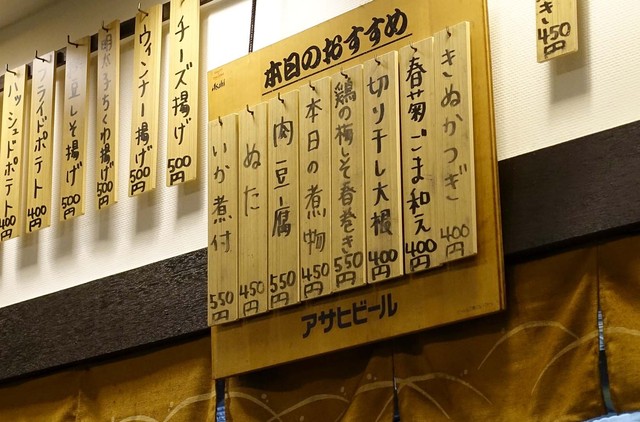 本日のおすすめ
Asahi
きぬかつぎ 400円
春菊ごま和え 400円
切り干し大根 400円
鶏の梅しそ春巻き 550円
本日の煮物 450円
肉豆腐 550円
ぬた 450円
いか煮付 550円
アサヒビール
き 450円
チーズ揚げ 500円
ウィンナー揚げ 500円
明太子ちくわ揚げ 500円
豆しそ揚げ 500円
フライドポテト 400円
ハッシュドポテト 400円